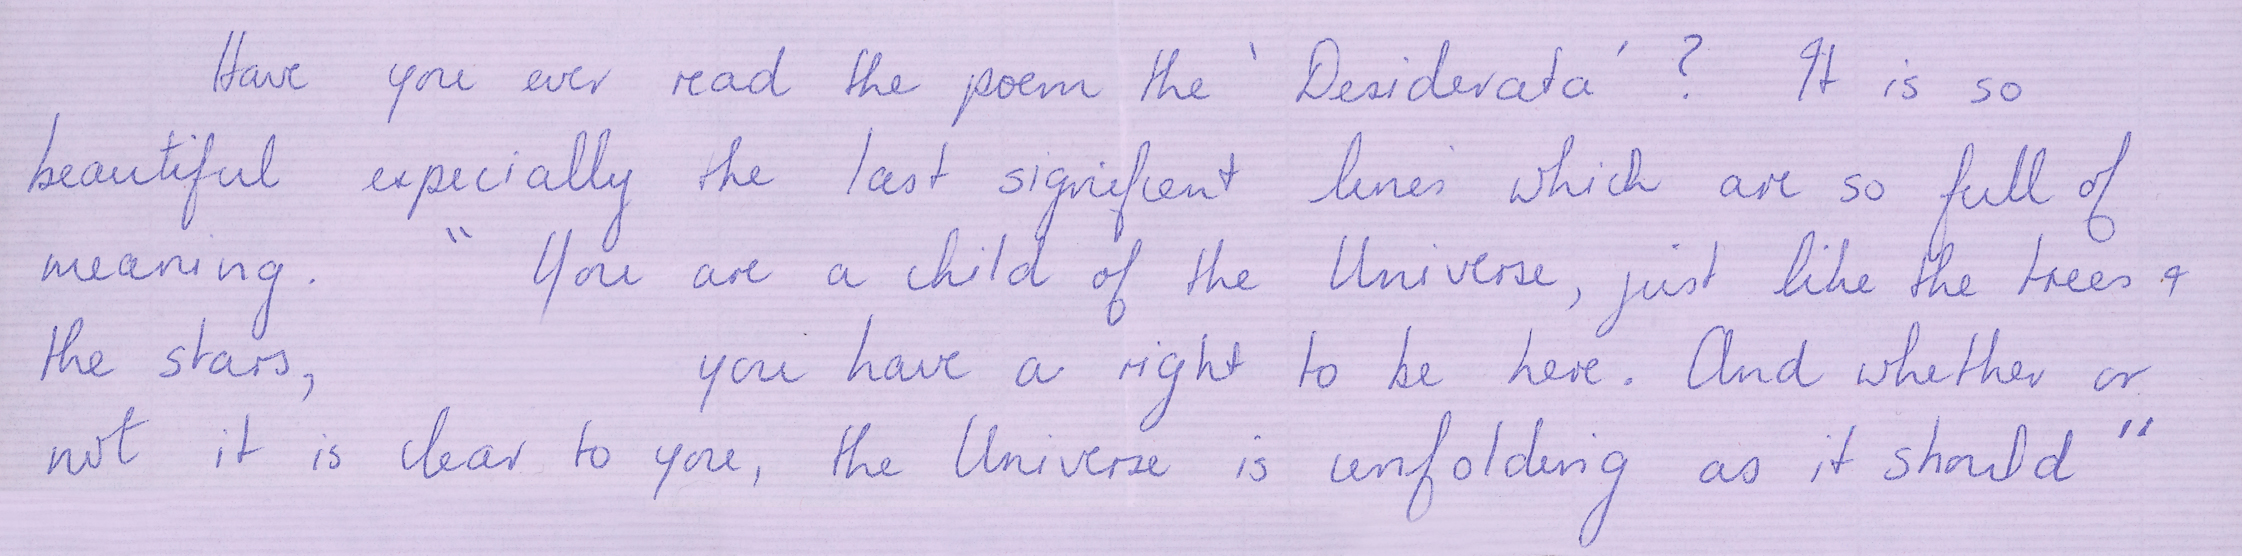 Have you ever read the poem the 'Desiderata'? It is so
beautiful expecially the last significent lines which are so full of
meaning. "You are a child of the Universe, just like the trees &
the stars, you have a right to be here. And whether or
not it is clear to you, the Universe is unfolding as it should"